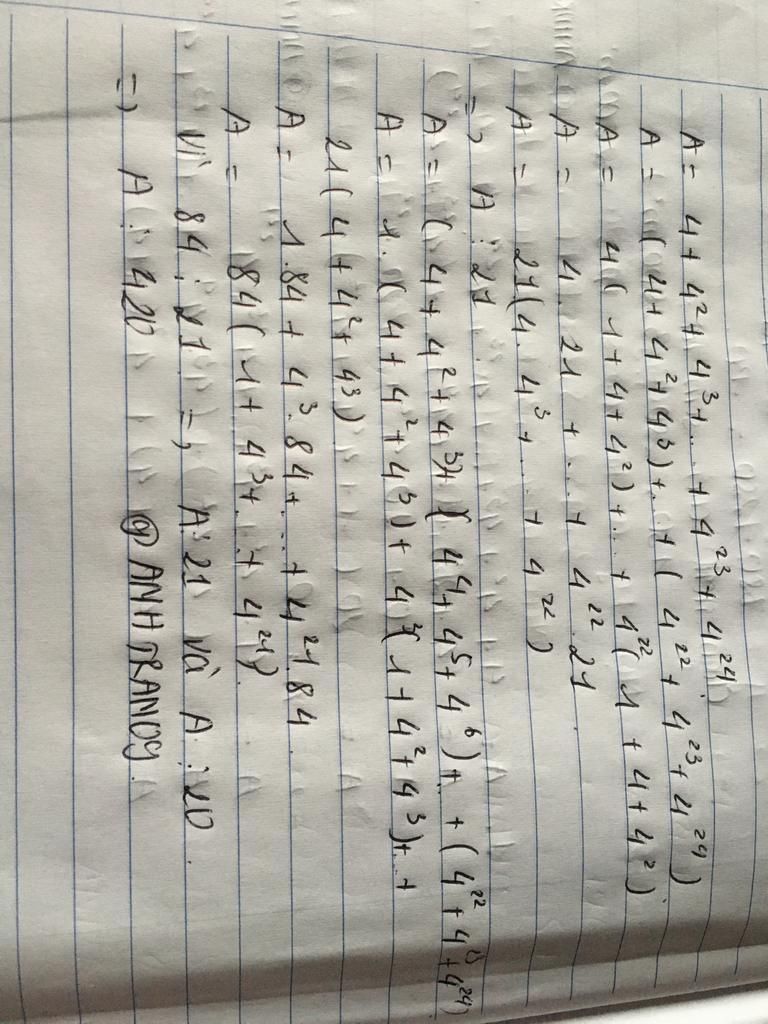 A = 4 + 4² + 4³ + ... + 4²³ + 4²⁴
A = (4 + 4² + 4³) + ... + (4²² + 4²³ + 4²⁴)
A = 4(1 + 4 + 4²) + ... + 4²²(1 + 4 + 4²)
A = 4 . 21 + ... + 4²² . 21
A = 21(4 . 4³ + ... + 4²²)
=> A ⋮ 21
A = (4 + 4² + 4³) + (4⁴ + 4⁵ + 4⁶) + ... + (4²² + 4²³ + 4²⁴)
A = 1 . (4 + 4² + 4³) + 4³(1 + 4² + 4³) + ... +
21(4 + 4² + 4³)
A = 1.84 + 4³.84 + ... + 4²¹.84
A = 84(1 + 4³ + ... + 4²¹)
Vì 84 ⋮ 21 => A ⋮ 21 và A ⋮ 20
=> A ⋮ 420 @ANH